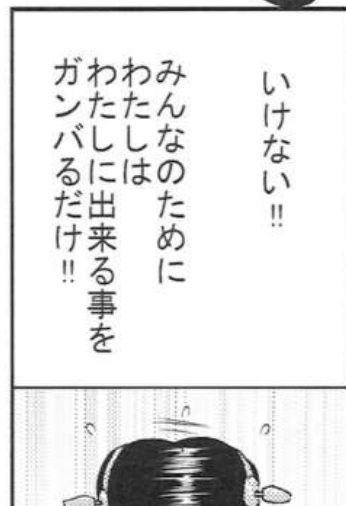 いけない!!
みんなのために
わたしは
わたしに出来る事を
ガンバるだけ!!